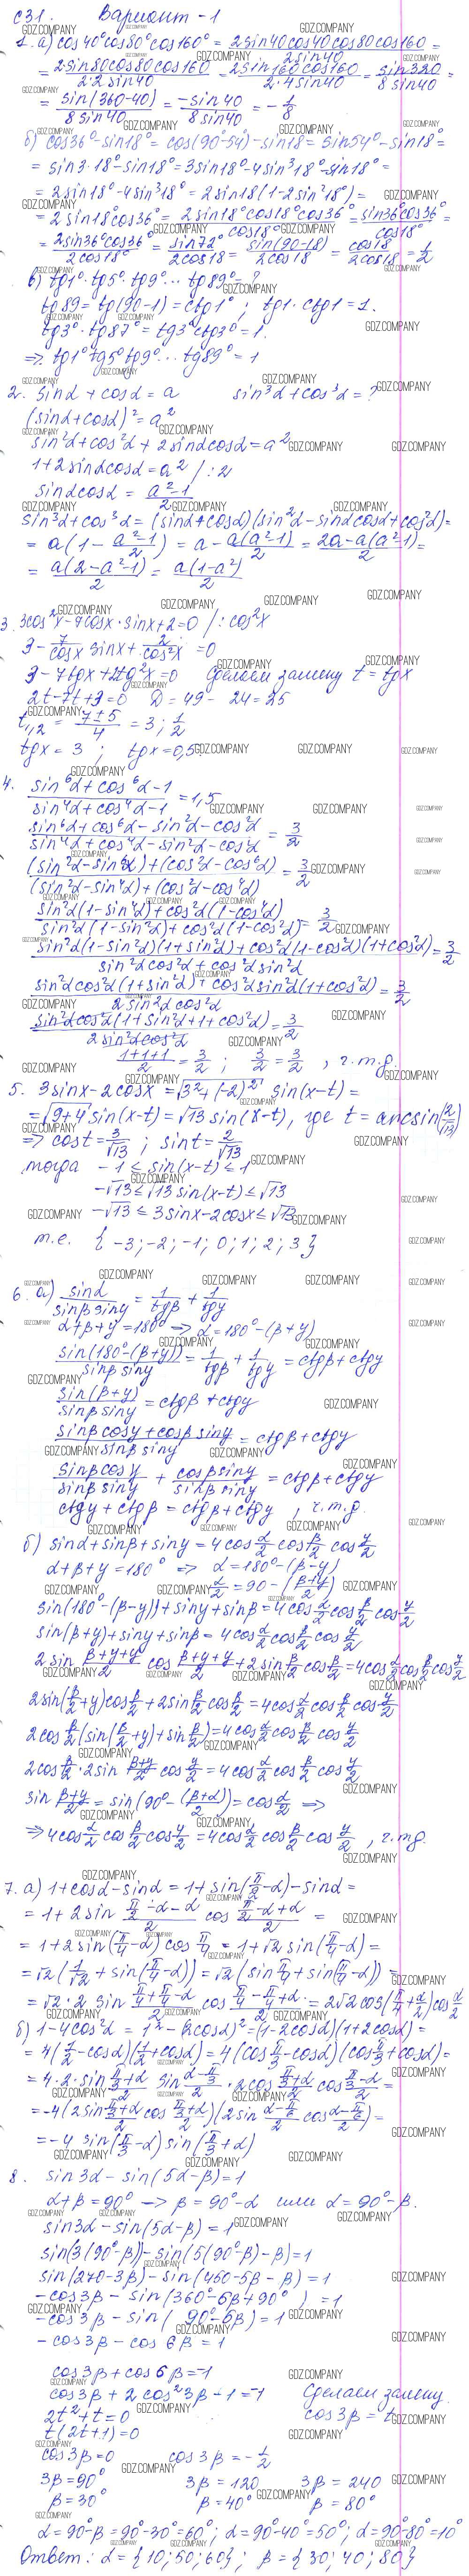 С31. Вариант - 1
1. а) cos40°cos80°cos160° = 2sin40cos40cos80cos160 / 2sin40 =
= 2sin80cos80cos160 / 2·2sin40 = 2sin160cos160 / 2·4sin40 = sin320 / 8sin40 =
= sin(360-40) / 8sin40 = -sin40 / 8sin40 = -1/8
б) cos36° - sin18° = cos(90°-54°) - sin18° = sin54° - sin18° =
= sin3·18° - sin18° = 3sin18° - 4sin³18° - sin18° =
= 2sin18° - 4sin³18° = 2sin18(1-2sin²18°) =
= 2sin18°cos36° = 2sin18°cos18°cos36° / cos18° = sin36°cos36° / cos18° =
= 2sin36°cos36° / 2cos18° = sin72° / 2cos18 = sin(90-18) / 2cos18 = cos18 / 2cos18 = 1/2
в) tg1°·tg5°·tg9°... tg89° = ?
tg89 = tg(90-1) = ctg1° ; tg1·ctg1 = 1.
tg3°·tg87° = tg3°ctg3° = 1.
=> tg1°tg5°tg9°... tg89° = 1
2. sinα + cosα = a sin³α + cos³α = ?
(sinα + cosα)² = a²
sin²α + cos²α + 2sinαcosα = a²
1 + 2sinαcosα = a² /:2
sinαcosα = a²-1 / 2
sin³α + cos³α = (sinα + cosα)(sin²α - sinαcosα + cos²α) =
= a(1 - a²-1 / 2) = a - a(a²-1) / 2 = 2a - a(a²-1) / 2 =
= a(2-a²-1) / 2 = a(1-a²) / 2
3. 3cos²x - 7cosx·sinx + 2 = 0 /:cos²x
3 - 7/cosx sinx + 2/cos²x = 0
3 - 7tgx + 2tg²x = 0 Сделаем замену t = tgx
2t - 7t + 3 = 0 D = 49 - 24 = 25
t₁,₂ = 7±5 / 4 = 3; 1/2
tgx = 3 ; tgx = 0,5
4. sin⁶α + cos⁶α - 1 / sin⁴α + cos⁴α - 1 = 1,5
sin⁶α + cos⁶α - sin²α - cos²α / sin⁴α + cos⁴α - sin²α - cos²α = 3/2
(sin²α - sin⁶α) + (cos²α - cos⁶α) / (sin²α - sin⁴α) + (cos²α - cos⁴α) = 3/2
sin²α(1-sin⁴α) + cos²α(1-cos⁴α) / sin²α(1-sin²α) + cos²α(1-cos²α) = 3/2
sin²α(1-sin²α)(1+sin²α) + cos²α(1-cos²α)(1+cos²α) / sin²αcos²α + cos²αsin²α = 3/2
sin²αcos²α(1+sin²α) + cos²αsin²α(1+cos²α) / 2sin²αcos²α = 3/2
sin²αcos²α(1+sin²α+1+cos²α) / 2sin²αcos²α = 3/2
1+1+1 / 2 = 3/2 ; 3/2 = 3/2 , ч.т.д.
5. 3sinx - 2cosx = √3²+(-2)² sin(x-t) =
= √9+4 sin(x-t) = √13 sin(x-t), где t = arcsin(2/√13)
=> cost = 3/√13 ; sint = 2/√13
тогда -1 ≤ sin(x-t) ≤ 1
-√13 ≤ √13 sin(x-t) ≤ √13
-√13 ≤ 3sinx - 2cosx ≤ √13
т.е. {-3; -2; -1; 0; 1; 2; 3}
6. а) sinα / sinβ sinγ = 1/tgβ + 1/tgγ
α+β+γ = 180° => α = 180° - (β+γ)
sin(180°-(β+γ)) / sinβ sinγ = 1/tgβ + 1/tgγ = ctgβ + ctgγ
sin(β+γ) / sinβ sinγ = ctgβ + ctgγ
sinβcosγ + cosβ sinγ / sinβ sinγ = ctgβ + ctgγ
sinβcosγ / sinβ sinγ + cosβ sinγ / sinβ sinγ = ctgβ + ctgγ
ctgγ + ctgβ = ctgβ + ctgγ , ч.т.д.
б) sinα + sinβ + sinγ = 4cos α/2 cos β/2 cos γ/2
α+β+γ = 180° => α = 180° - (β-γ)
α/2 = 90 - (β+γ / 2)
sin(180°-(β-γ)) + sinγ + sinβ = 4cos α/2 cos β/2 cos γ/2
sin(β+γ) + sinγ + sinβ = 4cos α/2 cos β/2 cos γ/2
2sin β+γ+γ / 2 cos β+γ+γ / 2 + 2sin β/2 cos β/2 = 4cos α/2 cos β/2 cos γ/2
2sin(β/2+γ)cos β/2 + 2sin β/2 cos β/2 = 4cos α/2 cos β/2 cos γ/2
2cos β/2 (sin(β/2+γ) + sin β/2) = 4cos α/2 cos β/2 cos γ/2
2cos β/2 · 2sin β+γ / 2 cos γ/2 = 4cos α/2 cos β/2 cos γ/2
sin β+γ / 2 = sin(90° - (β+α) / 2) = cos α/2 =>
=> 4cos α/2 cos β/2 cos γ/2 = 4cos α/2 cos β/2 cos γ/2 , ч.т.д.
7. а) 1 + cosα - sinα = 1 + sin(π/2 - α) - sinα =
= 1 + 2sin π/2-α-α / 2 cos π/2-α+α / 2 =
= 1 + 2sin(π/4 - α) cos π/4 = 1 + √2 sin(π/4 - α) =
= √2(1/√2 + sin(π/4 - α)) = √2(sin π/4 + sin(π/4 - α)) =
= √2·2 sin π/4+π/4-α / 2 cos π/4-π/4+α / 2 = 2√2cos(π/4 + α/2)cos α/2
б) 1 - 4cos²α = 1² - (2cosα)² = (1-2cosα)(1+2cosα) =
= 4(1/2 - cosα)(1/2 + cosα) = 4(cos π/3 - cosα)(cos π/3 + cosα) =
= 4·2·sin π/3+α / 2 sin α-π/3 / 2 · 2cos π/3+α / 2 cos π/3-α / 2 =
= -4(2sin π/3+α / 2 cos π/3+α / 2)(2sin α-π/6 / 2 cos α-π/6 / 2) =
= -4 sin(π/3 - α) sin(π/3 + α)
8. sin3α - sin(5α-β) = 1
α+β = 90° -> β = 90° - α или α = 90° - β.
sin3α - sin(5α-β) = 1
sin(3(90°-β)) - sin(5(90°-β) - β) = 1
sin(270-3β) - sin(450-5β-β) = 1
-cos3β - sin(360°-6β+90°) = 1
-cos3β - sin(90°-6β) = 1
-cos3β - cos6β = 1
cos3β + cos6β = -1
cos3β + 2cos²3β - 1 = -1 Сделаем замену
2t² + t = 0 cos3β = t
t(2t+1) = 0
cos3β = 0 cos3β = -1/2
3β = 90° 3β = 120 3β = 240
β = 30° β = 40° β = 80°
α = 90°-β = 90°-30° = 60°; α = 90°-40° = 50°; α = 90°-80° = 10°
Ответ: α = {10; 50; 60}; β = {30; 40; 80}
GDZ.COMPANY